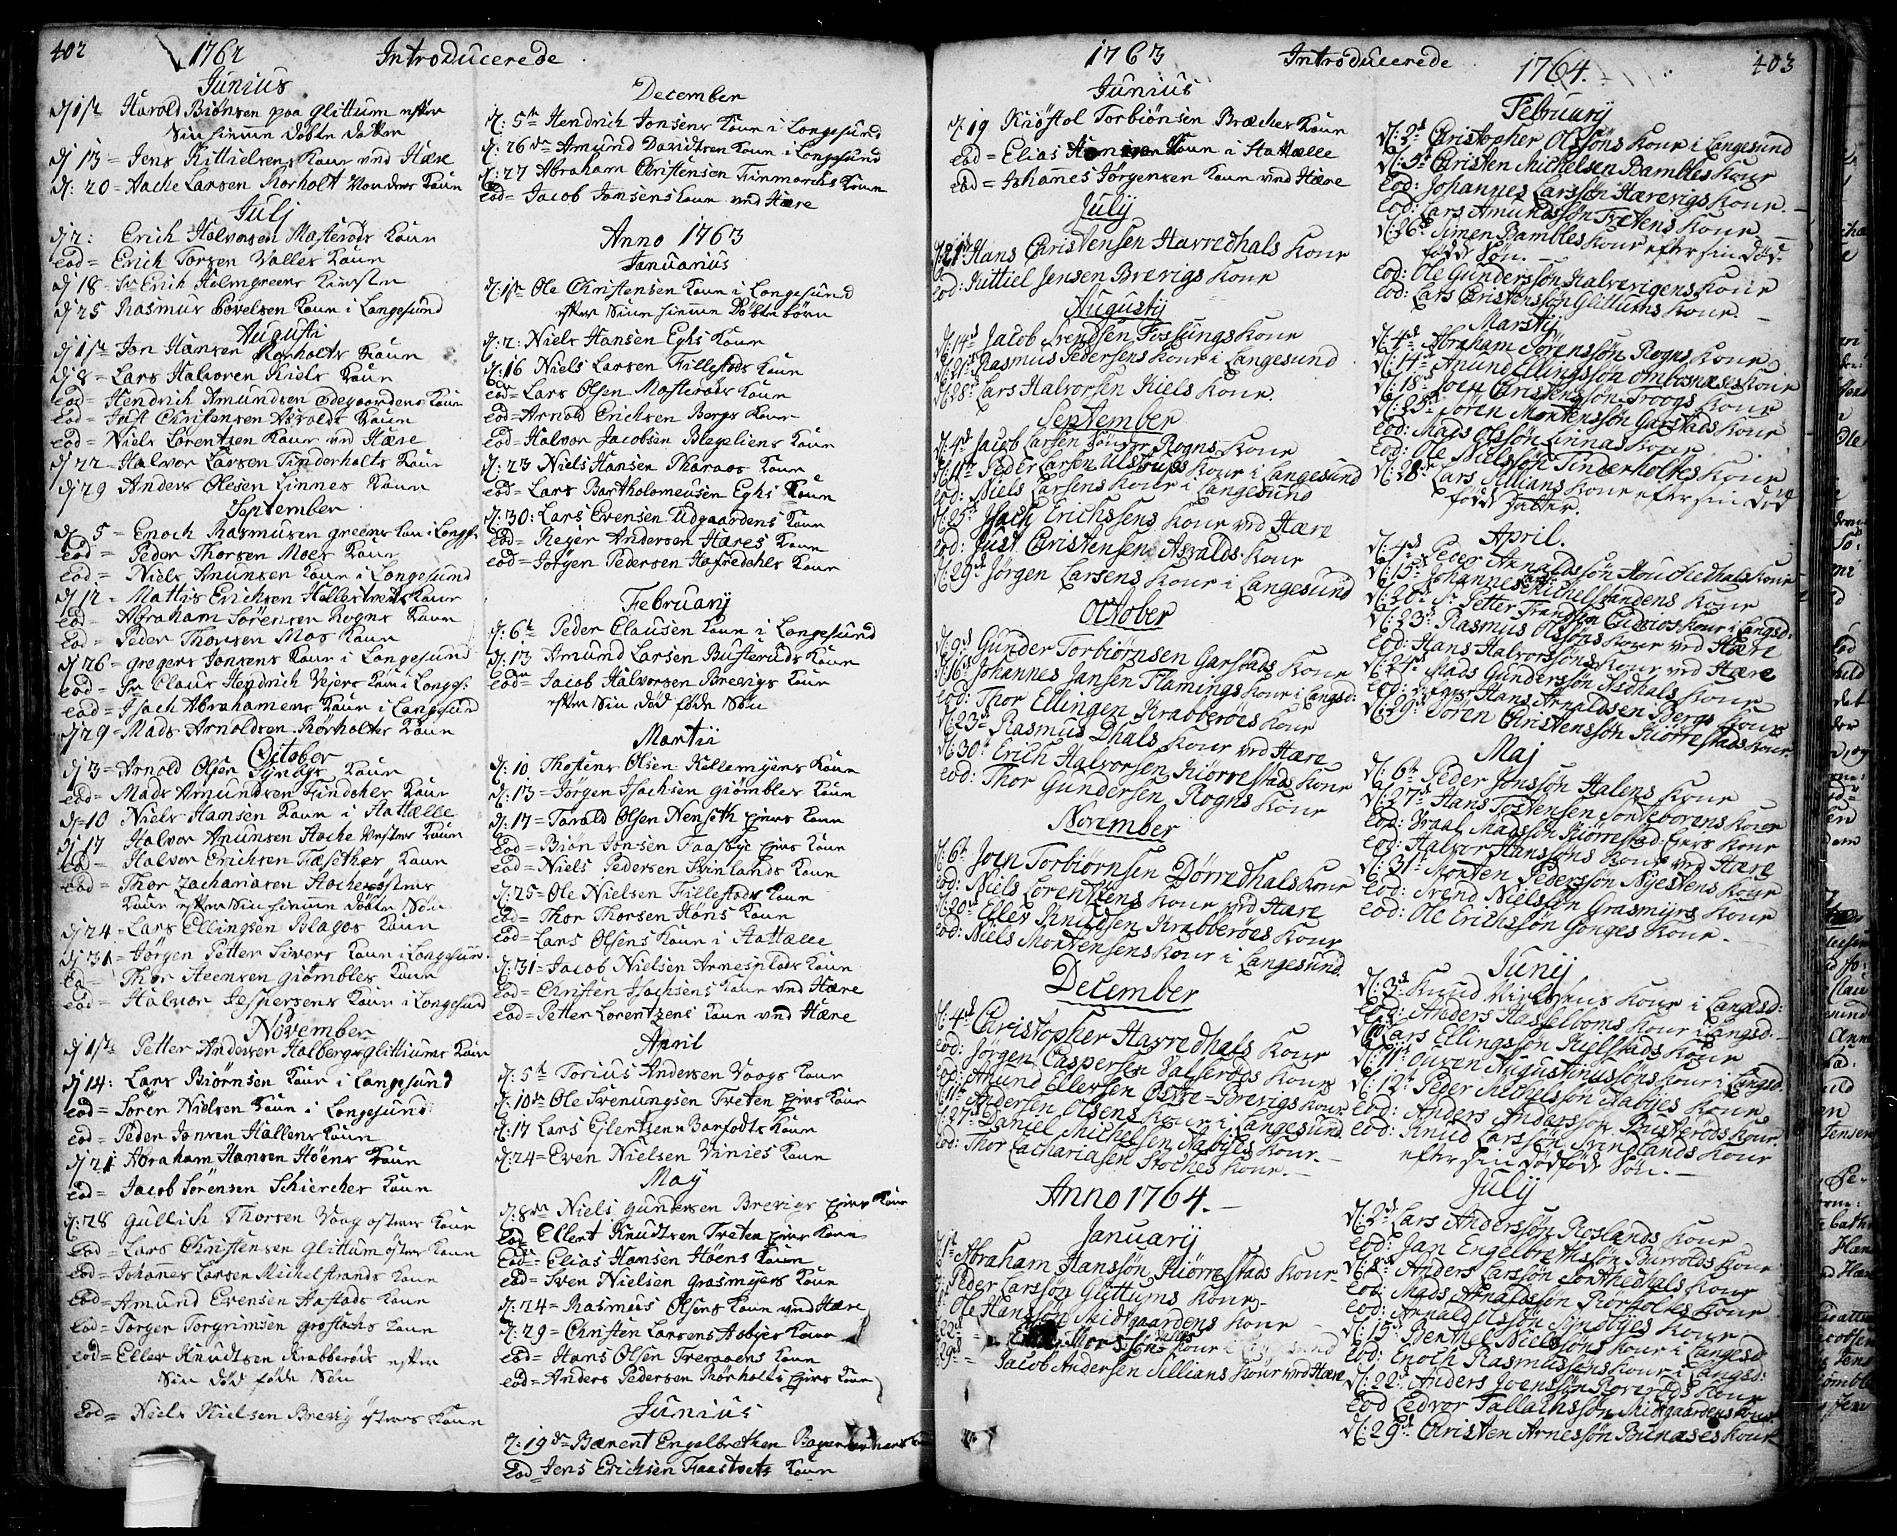 402 1762 Introducerede
Junius
d 1ste Harold Biönsen paa Glittum efter
Sin hiemme döbte datter
d 13 = Jens Kittielsens Kaun vnd Hære
d: 20 = Aache Larsen Rorholt Nordres Kaun
Julj
d 2: Erich Halvorsen Mosterøds Kaun
eod = Erich Torsen Valler Kaun
d 18 = Sr Erich Holmgreens
d 25 Rasmus Povelsen Kaun i Langesund
Augusti
d 1ste Jon Hansen Rorholts Kaun
d 8 = Lars Halvoren Kiels Kaun
eod = Hendrich Amundsen ödegaardens Kaun
eod = Just Christensen Asvalds Kaun
eod = Niels Lorentzen Kaun vnd Hære
d 22 = Halvor Larsen Tinderholts Kaun
d 29 Anders Olesen Linnes Kaun
September
d 5 = Enoch Rasmusen greens Kau i Longes
eod = Peder Thorsen Moes Kaun
eod = Niels Amunsen Kaun i Longesund
d 12 = Mattis Erichsen Hellestvets Kaun
eod = Abraham Sörensen Rogns Kaun
eod = Peder Thorsen Mos Kaun
d 26 = gregers Jonsens Kaun i Longesund
eod = Sr Claus Hendrich Vejers Kau i Longes:
eod = Isach Abrahamens Kaun i Langesund
d 29 = Mads Arnoldsen Rörholts Kaun
October
d 3 = Arnold Olsen Kaun
eod = Mads Amundsen Tindeler Kaun
d 10 Niels Hansen Kaun i Stattælle
d 17 Halvor Anunsen Stoche Vestres Kaun
eod = Halvor Erichsen Kaun
eod = Thor Zachariasen Stoche östres
Kaun efter Sin hiemme döbte Sön
d 24 = Lars Ellingsen Blages Kaun
d 31 = Jörgen Petter Sivers Kaun i Longesun
eod = Thor Steensen giömbles Kaun
eod = Halvor Jespersens Kaun i Longesund
November
d 1ste Petter Andersen Halbergs glittiums Kaun
d 14: Lars Biörnsen Kaun i Langesund
eod = Sören Nielsen Kaun i Longesund
eod = Peder Jonsen Hallens Kaun
d 21 Abraham Hansen Höens Kaun
eod = Jacob Sörensen Schiercher Kaun
d: 28 Gullich Thorsen Vaag östres Kaun
eod = Lars Christensen glittum östres Kaun
eod = Johannes Larsen Michelstrands Kaun
eod = Amund Evensen Kaun
eod = Torger Torgrimsen Kaun
eod = Eller Knudtsen Krabberöds efter
Sin död föde Sön
eod = Niels Nielsen Brevig östres Kaun
December
d: 5te Hendrich Jonsens Kaun i Longesund
d: 26de Amund Davidtsen Kaun i Longesund
d: 27 Abraham Christensen Finmarchs Kaun
eod = Jacob Jansens Kaun vnd Hære
Anno 1763
Januarius
d: 1ste Ole Christensen Kaun i Longesund
efter Sine hieme Döbte börn
d: 2: Niels Hansen Eghs Kaun
d: 16 Niels Larsen Fillestads Kaun
eod = Lars Olsen Mosteröds Kaun
eod = Arnold Erichsen Bergs Kaun
eod = Halvor Jacobsen Blegeliens Kaun
d: 23 Niels Hansen Pharaos Kaun
eod = Lars Bartholomeusen Eghs Kaun
d: 30: Lars Evensen Udgaardens Kaun
eod = Reyer Andersen Hæres Kaun
eod = Jörgen Pedersen Hafredahls Kaun
February
d: 6te Peder Clausen Kaun i Longesund
d: 13 Amund Larsen Busteruds Kaun
eod = Jacob Halvorsen Brevigs Kaun
efter Sin död föde Sön
Martii
d: 10. Thostens Olsen Kellemyrens Kaun
d: 13 = Jörgen Isachsen giömbles Kaun
d: 17 = Tarald Olsen Nenseth Kaun
eod = Biön Jonsen Faasbye Kaun
eod = Niels Pedersen Svinlands Kaun
d: 25 = Ole Nielsen Fillestads Kaun
eod = Thor Thorsen Höns Kaun
eod = Lars Olsens Kaun i Stattælle
d: 31 = Jacob Nielsen Arnesplads Kaun
eod = Christen Isachsens Kaun vnd Hære
eod = Petter Lorentzens Kaun vnd Hære
April
d: 5te Torius Andersen Vaags Kaun
d: 10de Ole Svenungsen Treten Kaun
d: 17 Lars Eilertsen Barfodts Kaun
d: 24 = Even Nielsen Vinies Kaun
May
d: 8de Niels gundersen Brevigs Kaun
eod Ellert Knudtsen Treten Kaun
eod = Elias Hansen Höens Kaun
eod = Sven Nielsen grasmyers Kaun
d: 24 = Rasmus Olsens Kaun vnd Hære
d: 29 = Christen Larsens Aabyes Kaun
eod = Hans Olsen Kaun
eod = Anders Pedersen Rörholts Kaun
Junius
d: 19de Bærent Engelbrethen Kaun
eod = Jens Erichsen Faastvets Kaun
1763 Introducerede 1764. 403
Junius
d. 19 Kristol Torbiönsen Bræches Kaun
eod = Elias Kaun i Stattælle
eod = Johannes Jörgensen Kaun vnd Hære
July
d: 21de Hans Christensen Havredhals Kone
eod: Kittiel Jensen Brevigs Kone
Augustij
d: 14d Jacob Svendsen Fossungs Kone
d: 21d Rasmus Pedersens Kone i Langesund
d: 28d Lars Halvorsen Kiels Kone.
September
d: 4d Jacob Larsen Søndre Rogns Kone
d: 11te Peder Larsen Ulstrups Kone i Langesund
eod: Niels Larsens Kone i Langesund
d: 25d Isach Erichsens Kone ved Hære
eod: Just Christensen Asvalds Kone
d: 29d Jörgen Larsens Kone i Langesund
October
d: 9d Gunder Torbiörnsen Garstads Kone
d: 16d Johannes Jansen Flamings Kone i Langsd:
eod: Thor Ellingen Krabberöes Kone
d: 23d Rasmus Dhals Kone ved Hære
d: 30d Erich Halvorsen Kiörrestads Kone
eod: Thor Gundersen Rogns Kone
November
d: 6te Joen Torbiörnsen Dørredhals Kone
eod: Niels Lorentzens Kone ved Hære
d: 20d Eller Knudsen Krabberöes Kone
eod: Niels Mortensens Kone i Langesund
December
d: 4d Christopher Havredhals Kone
eod: Jörgen Caspersen Valleröds Kone
eod: Amund Ellefsen Østre=Brevigs Kone
d: 11te Andersen Olsens Kone i Langesund
d: 27d Daniel Michelsen Aabyes Kone.
eod: Thor Zachariasen Stoches Kone.
Anno 1764.
Januarij
d: 1te Abraham Hanssön Kiörrestads Kone
Peder Larssön Glittums Kone
Ole Hanssön Midtgaardens Kone
22d Kone i Langesund
29d = Jacob Andersen Sillians Kone ved Hære
Februarij
d: 2d Christopher Olssöns Kone i Langesund
d: 5d Christen Michelsen Bambles Kone
eod: Johannes Larssön Hærevigs Kone.
eod: Lars Amundssön Tretens Kone
d: 26d Simen Bambles Kone efter sin död-
född Sön.
eod: Ole Gunderssön Kalvevigens Kone
eod: Lars Christenssön Glittums Kone.
Martij
d: 4d Abraham Sörenssön Rogns Kone
d: 14d Amund Ellingssön Ombordsnæs Kone
d: 18d Joen Christenssön Kroogs Kone
d: 25d Sören Mortenssön Garstads Kone
eod: Mads Olssön Linnas Kone
eod: Ole Nielssön Tinderholtes Kone
d: 28d Lars Sillians Kone efter sin död
född Datter.
April.
d: 4d Peder Arnoldssön Kone
d: 15d Johannes Larss: Michelstrandens Kone
d: 20d Sr Petter Frandssön Cudrios Kone i Langsd:
d: 23d Rasmus Olssöns Kone ved Hære
eod: Hans Halvorssöns Kone ved Hære
d: 24d Mads Gunderssön Aasdhals Kone
eod: Hans Arnoldsen Bergs Kone
d: 29d Sören Christenssön Kiörrestads Kone.
Maj
d: 6te Peder Jonssön Halens Kone
d: 27d Hans Tostensen Kone
eod: Vraal Madssön Kiörrestad Kone
eod: Halvor Hanssöns Kone ved Hære
d: 31d Morten Pederssön Nyestens Kone
eod: Svend Nielssön Grasmyrs Kone
eod: Ole Erichssön Gonges Kone.
Junij
d: 3d Knud Kone i Langsd:
eod: Anders Hasselboms Kone i Langsd:
d: Lars Ellingssön Kielstads Kone
d: 11te Ouven Augustinussöns Kone i Langsd
d: 12te Peder Michelssön Aabyes Kone
eod: Anders Anderssön Busteröds Kone
eod: Knud Larssön Svinelands Kone
efter sin dödföd Sön.
July
d: 2d Lars Anderssön Roslands Kone
eod: Jan Engelbrethssön Kone
d: 8d Anders Larssön Kone
eod: Mads Arnoldssön Rörholts Kone
eod: Arnold Olssön Kone
d: 15d Benthel Nielssöns Kone i Langsd:
eod: Enoch Rasmussöns Kone i Langsd:
d: 22d Anders Joenssön Kone
eod Ledvor Tallachssön Midtgaardens Kone
d: 29d Christen Arnessön Bunæses Kone